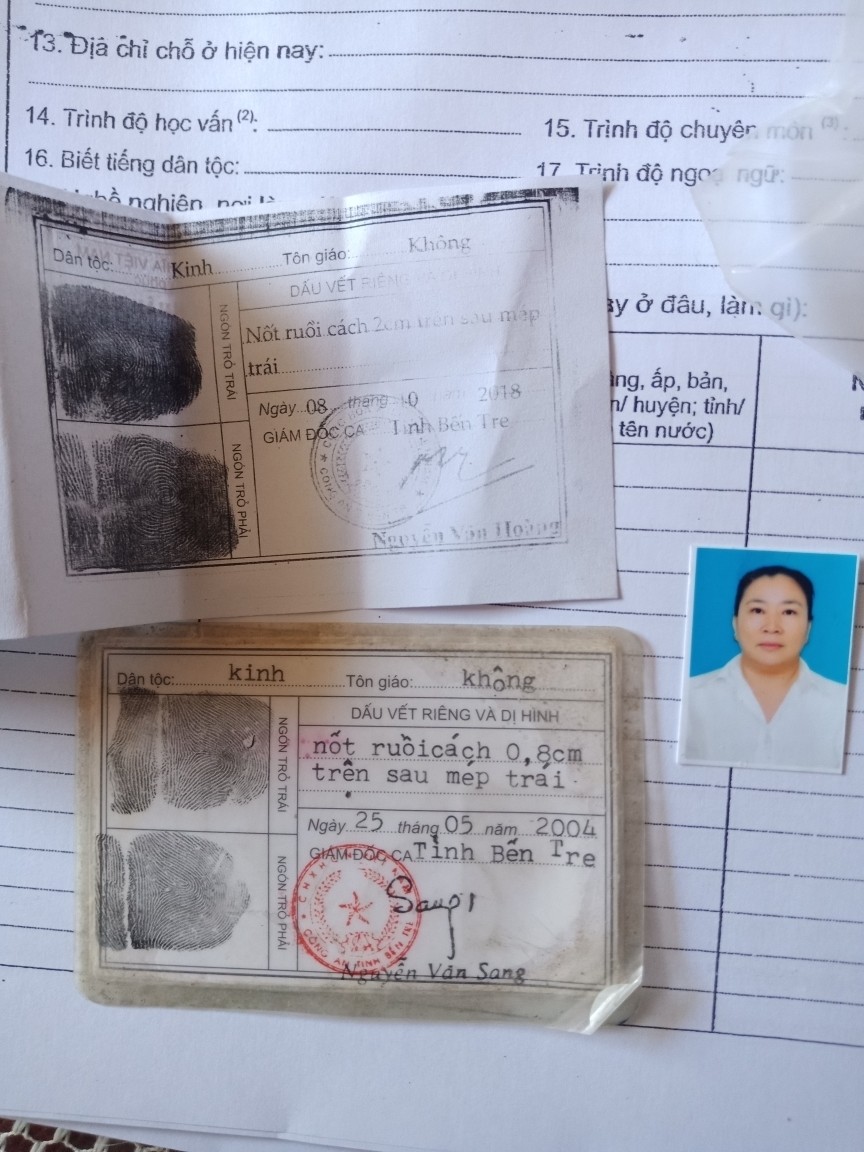 13. Địa chỉ chỗ ở hiện nay:
14. Trình độ học vấn (2):
15. Trình độ chuyên môn (3):
16. Biết tiếng dân tộc:
17. Trình độ ngoại ngữ:
ay ở đâu, làm gì):
ấp, bản,
n/ huyện; tỉnh/
tên nước)
Dân tộc: Kinh Tôn giáo: Không
DẤU VẾT RIÊNG VÀ DỊ HÌNH
Nốt ruồi cách 2cm trên sau mép
trái
Ngày 08 tháng 10 năm 2018
GIÁM ĐỐC CA Tỉnh Bến Tre
Nguyễn Văn Hoàng
NGÓN TRỎ TRÁI
NGÓN TRỎ PHẢI
Dân tộc: kinh Tôn giáo: không
DẤU VẾT RIÊNG VÀ DỊ HÌNH
nốt ruồicách 0,8cm
trên sau mép trái.
Ngày 25 tháng 05 năm 2004
GIÁM ĐỐC CA Tỉnh Bến Tre
CÔNG AN TỈNH BẾN TRE
Nguyễn Văn Sang
NGÓN TRỎ TRÁI
NGÓN TRỎ PHẢI